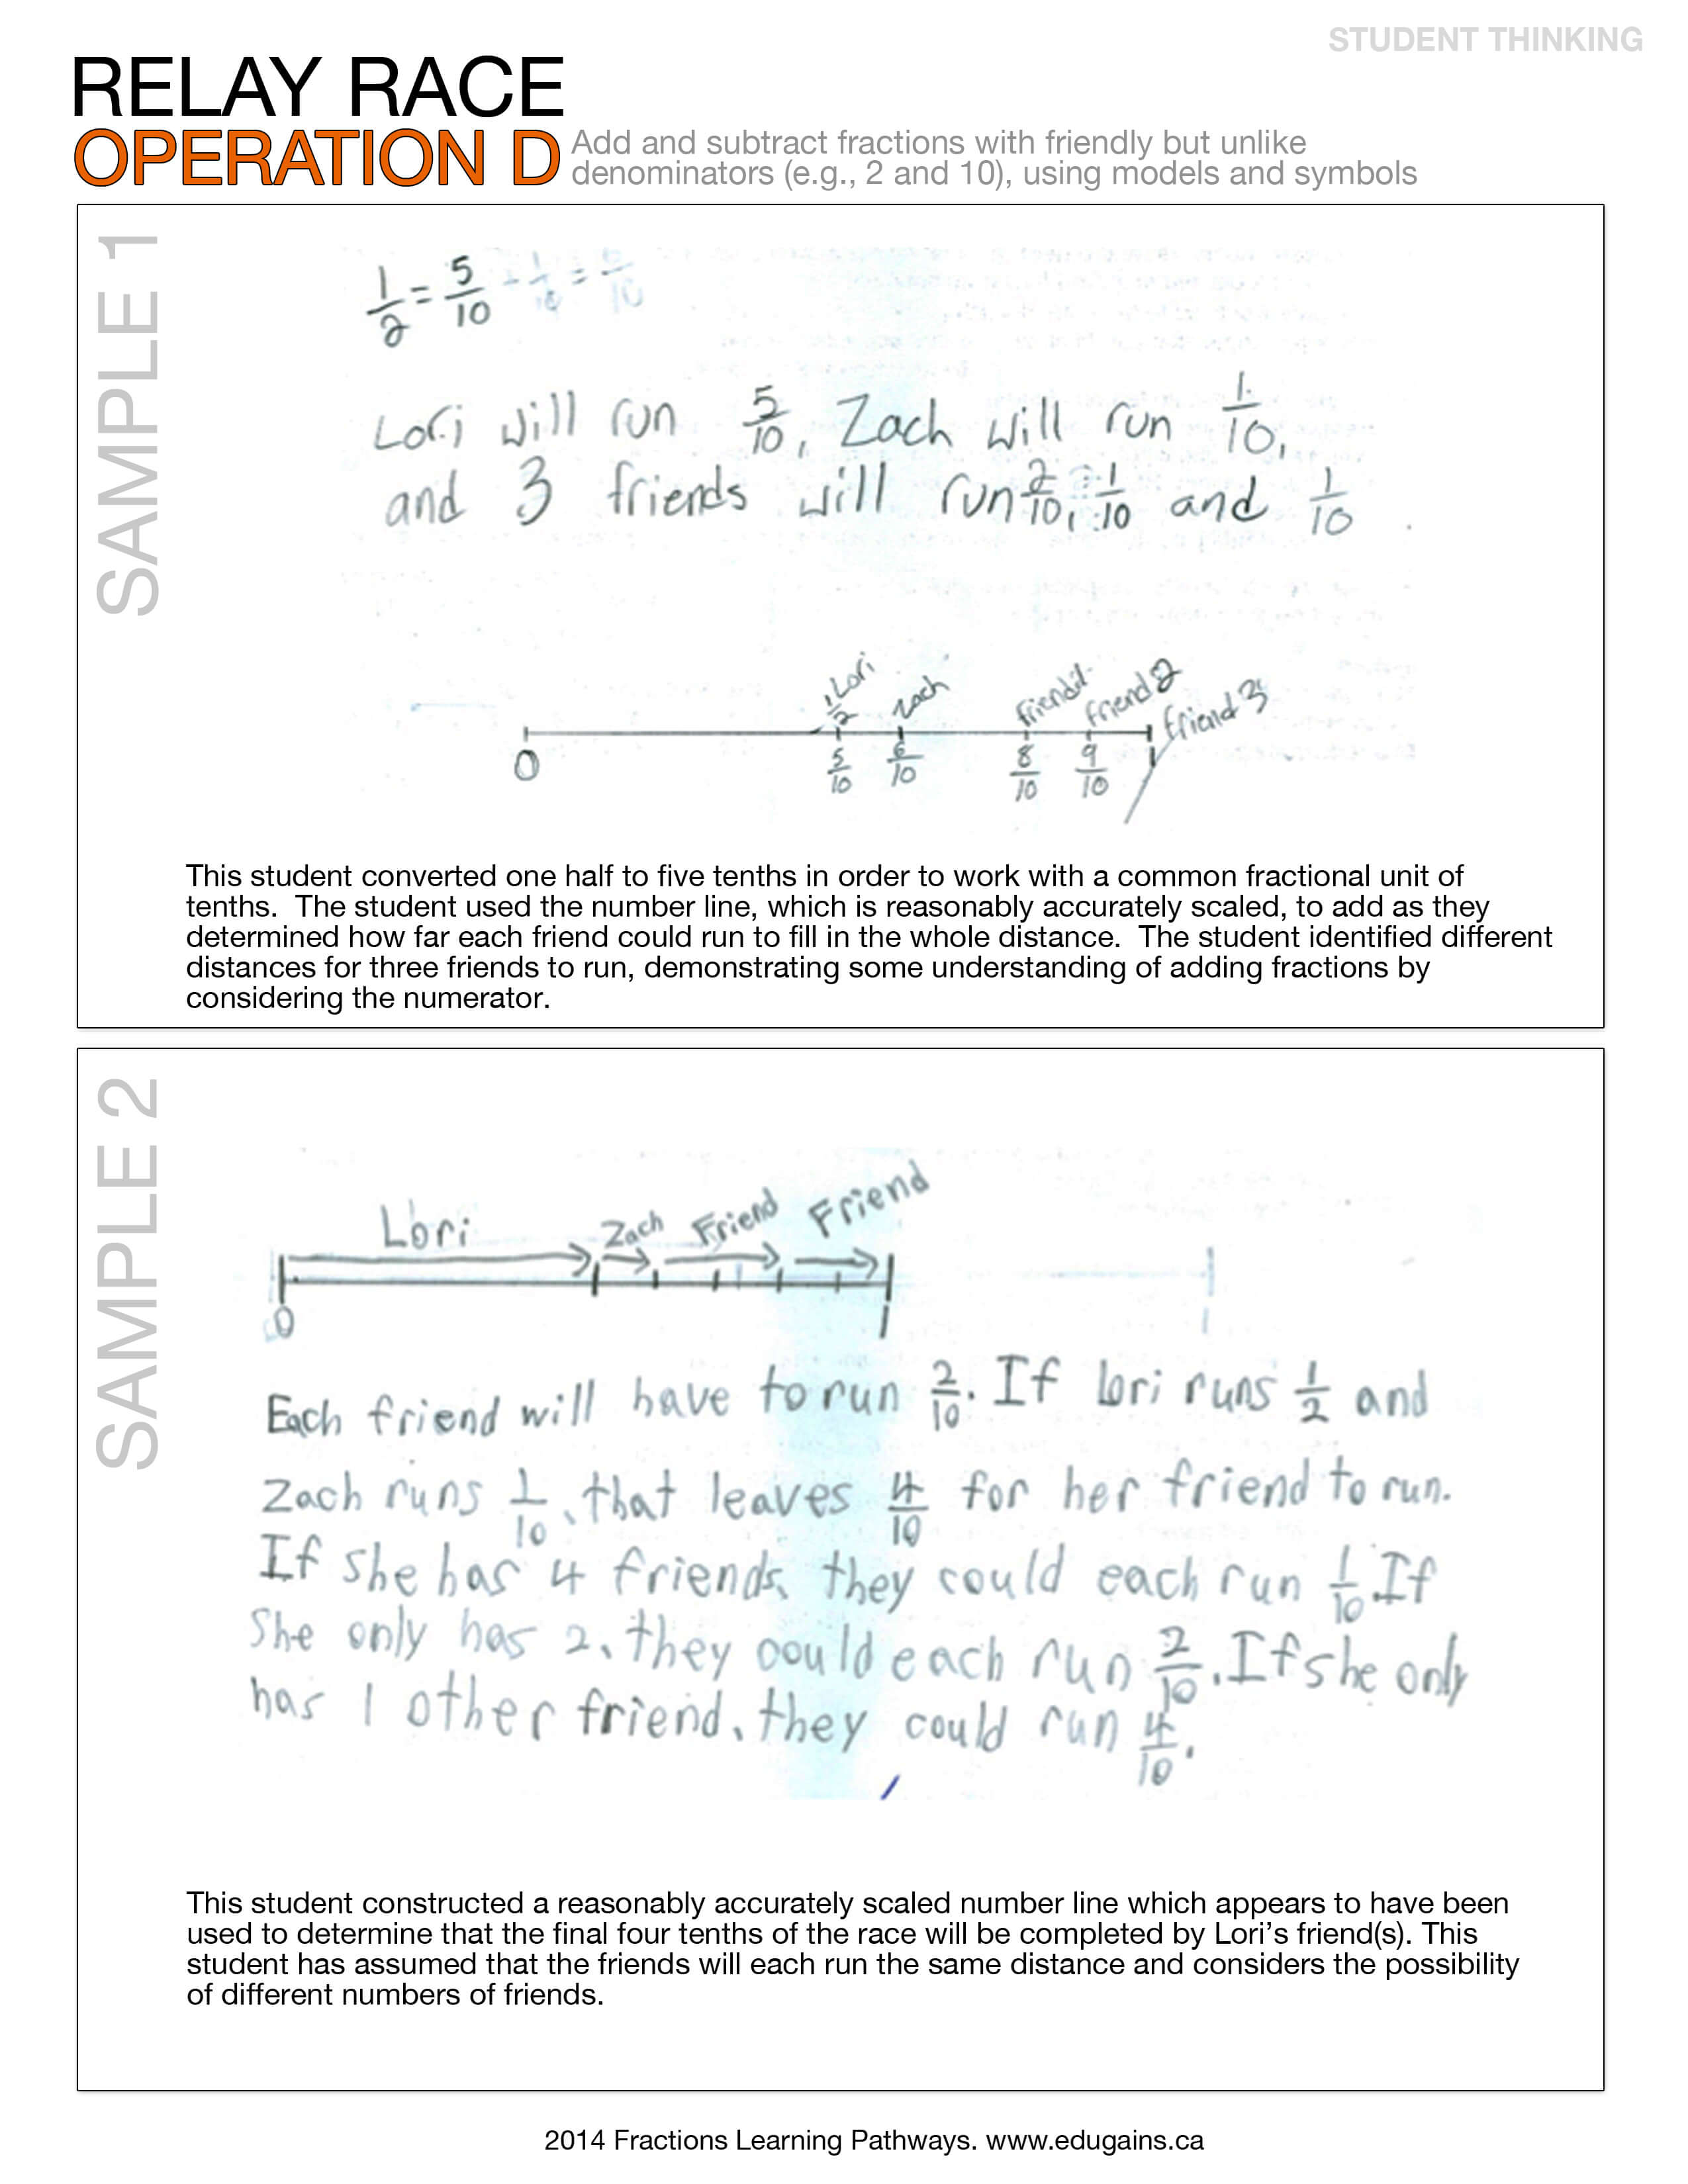 STUDENT THINKING
RELAY RACE
OPERATION D Add and subtract fractions with friendly but unlike
denominators (e.g., 2 and 10), using models and symbols
SAMPLE 1
1/2 = 5/10
Lori will run 5/10, Zach will run 1/10,
and 3 friends will run 2/10, 1/10 and 1/10.
1/2 Lori Zach friend 1 friend 2 friend 3
0 5/10 6/10 8/10 9/10 1
This student converted one half to five tenths in order to work with a common fractional unit of
tenths. The student used the number line, which is reasonably accurately scaled, to add as they
determined how far each friend could run to fill in the whole distance. The student identified different
distances for three friends to run, demonstrating some understanding of adding fractions by
considering the numerator.
SAMPLE 2
Lori Zach Friend Friend
0 1
Each friend will have to run 2/10. If lori runs 1/2 and
Zach runs 1/10, that leaves 4/10 for her friend to run.
If she has 4 friends, they could each run 1/10. If
She only has 2, they could each run 2/10. If she only
has 1 other friend, they could run 4/10.
This student constructed a reasonably accurately scaled number line which appears to have been
used to determine that the final four tenths of the race will be completed by Lori's friend(s). This
student has assumed that the friends will each run the same distance and considers the possibility
of different numbers of friends.
2014 Fractions Learning Pathways. www.edugains.ca